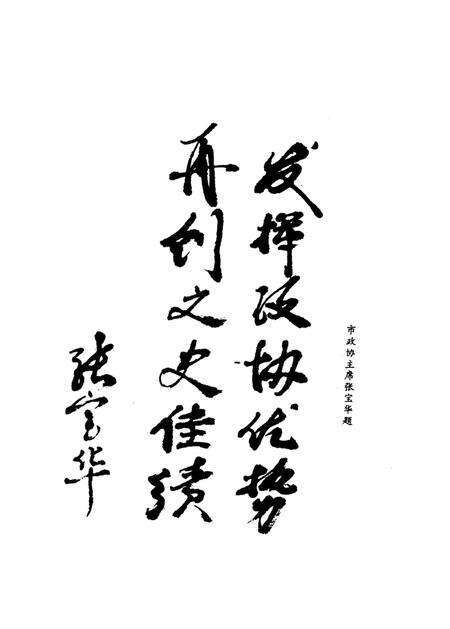 市政协主席张宝华题
发挥政协优势
再创文史佳绩
张宝华